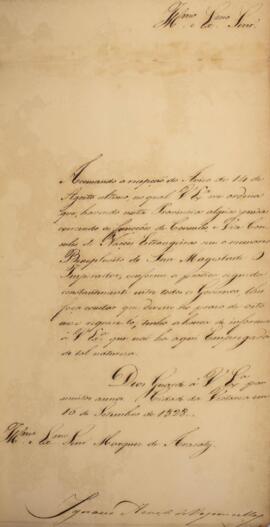 Illmo e Exmo Senr.
Accusando a recepção do Aviso de 14 de
Agosto ultimo no qual V. Exa me ordena
que, havendo nesta Provincia alguem
exercendo as funcções de Consules e Vice Con
sules de Nações Estrangeiras sem o necessario
Beneplacito de Sua Magestade O
Imperador, conforme a pratica seguida
constantemente entre todos os Governos, lhes
faça constar que devem no praso de oito
mezes requere-lo, tenho a honra de informar
a V. Exa que não ha aqui Empregados
de tal natureza.
Deos Guarde a V. Exa por
muitos annos. Cidade da Victoria em
10 de Setembro de 1828.
Illmo e Exmo Senr Marquez de Aracaty.
Ignacio Accioli de Vasconcellos